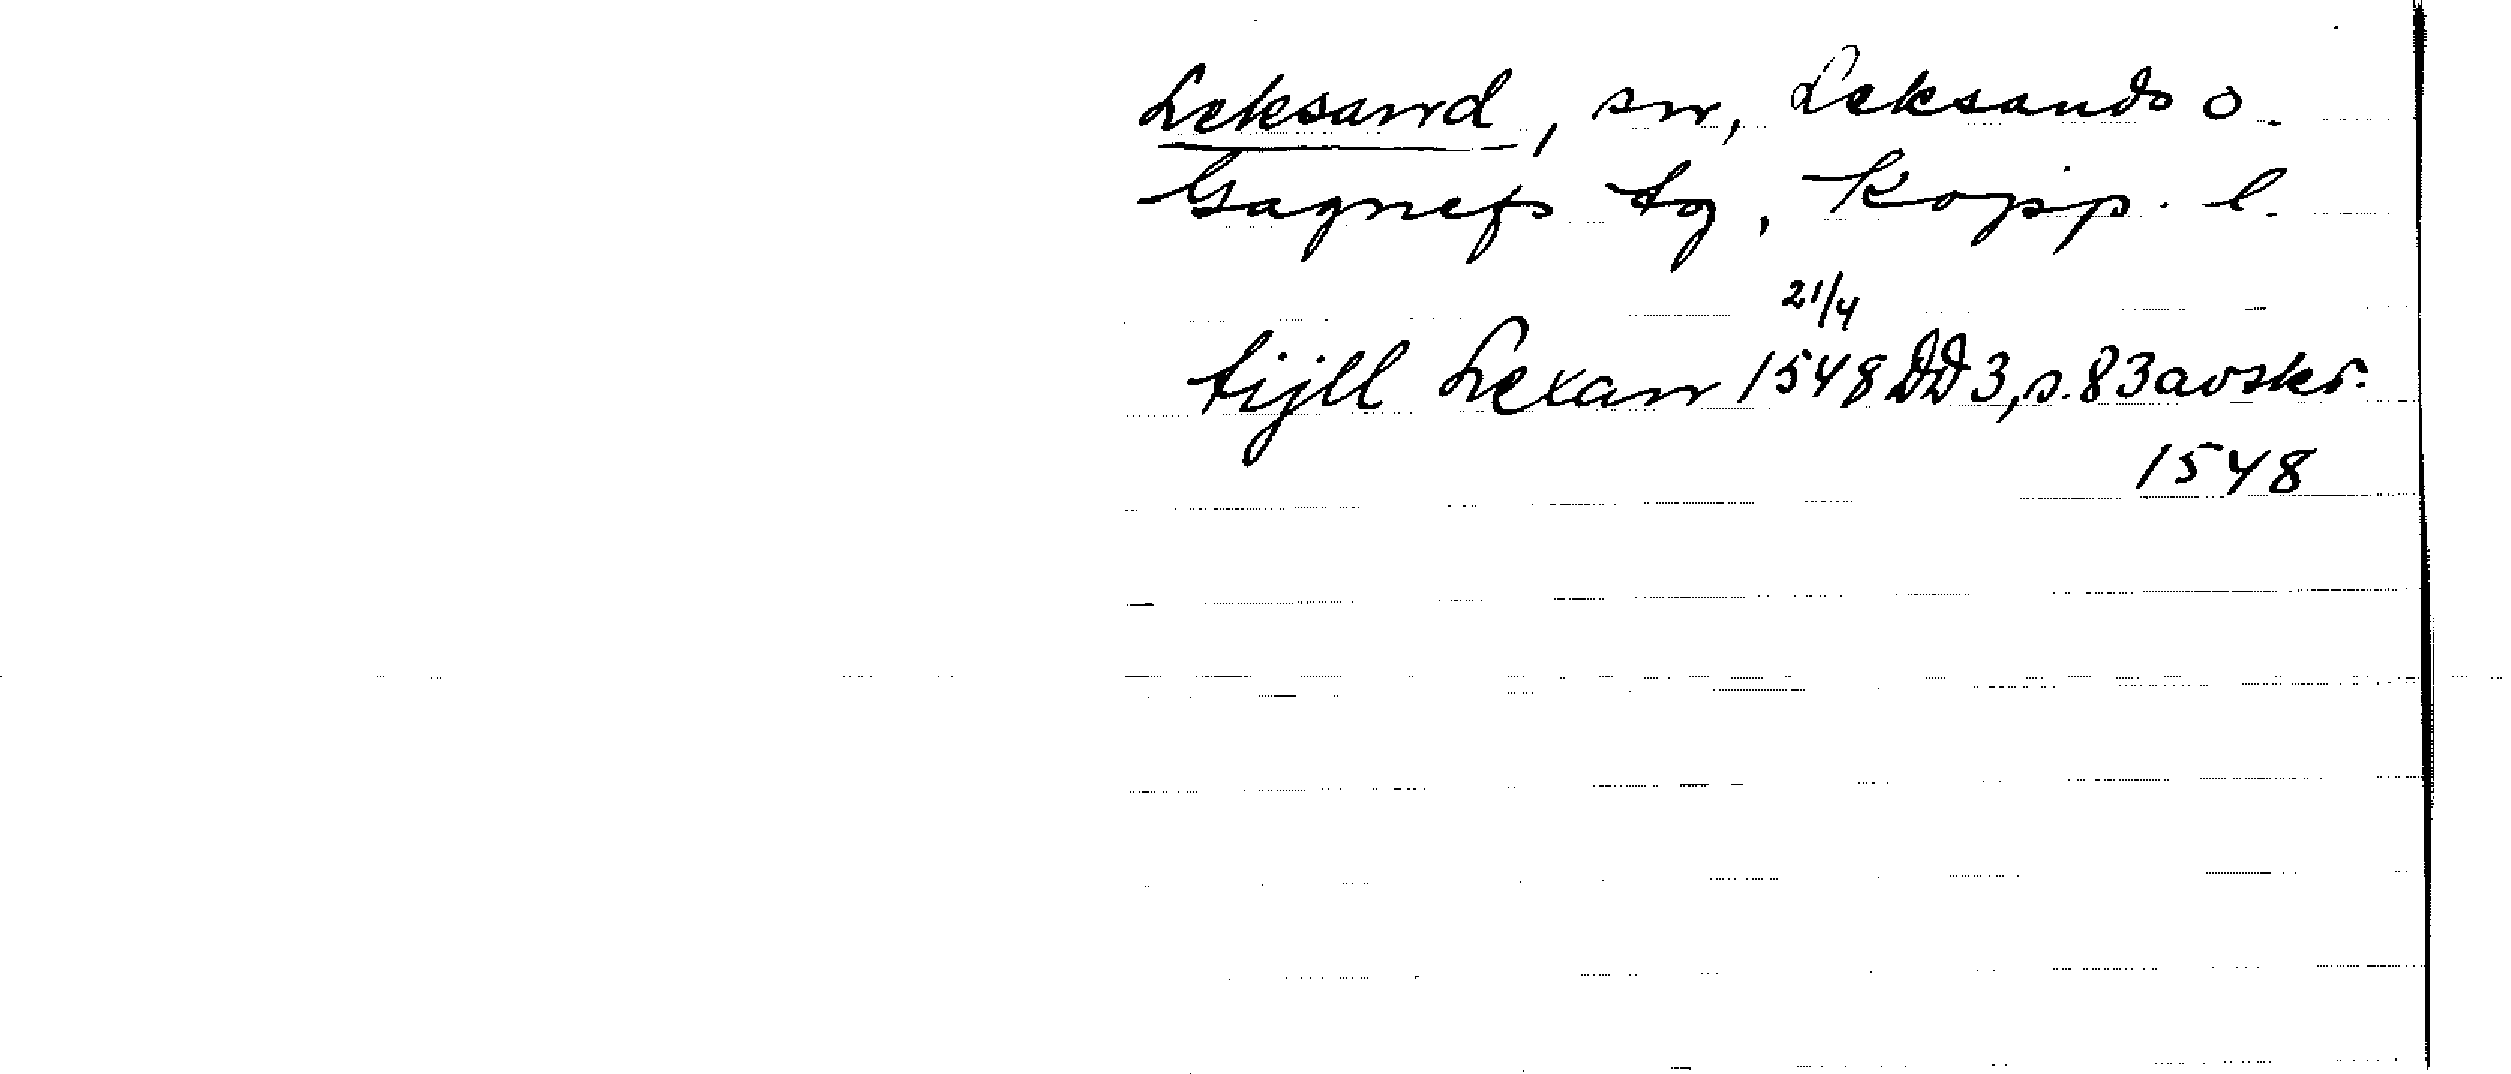 Leksand, sn, Leksands o.
Gagnefs tg, Kopp. l.
21/4
tijll Lexan 1548 DD 3, s. 83 avskr.
1548